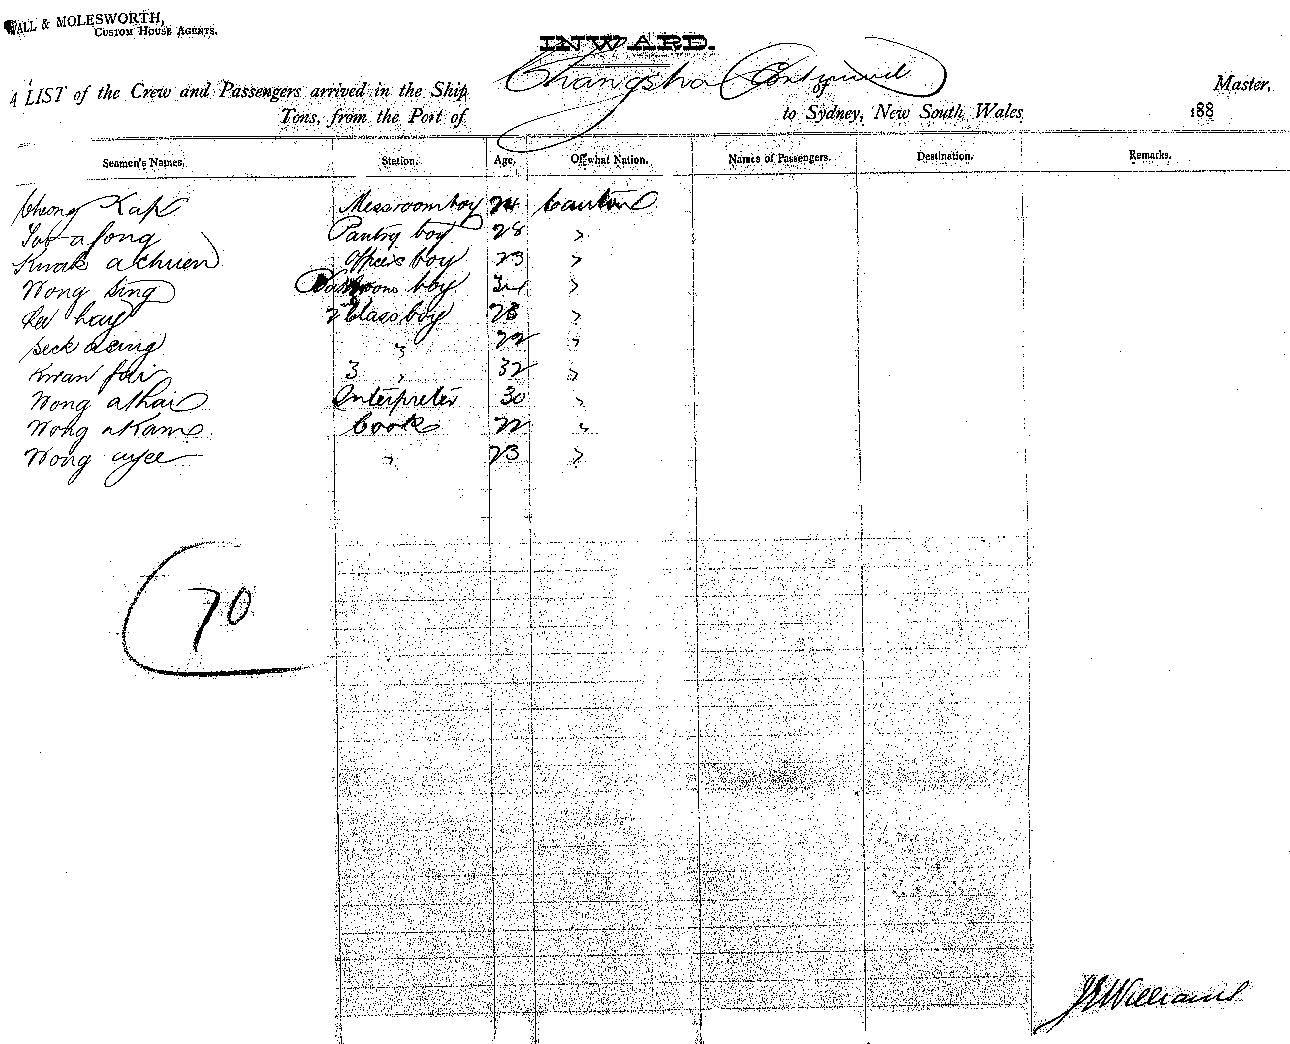 WALL & MOLESWORTH,
CUSTOM HOUSE AGENTS.
INWARD.
A LIST of the Crew and Passengers arrived in the Ship Changsha (Continued) of Master,
Tons, from the Port of to Sydney, New South Wales 188
Seamen's Names. Station. Age. Of what Nation. Names of Passengers. Destination. Remarks.
Cheong Kap Messroom boy 24 Canton
afong Pantry boy 28 "
Kwak achuen Officers boy 23 "
Wong Sing boy 34 "
hay 2 Class boy 28 "
Seck asing " 22 "
Kwan fai 3 " 32 "
Wong athai Interpreter 30 "
Wong akam Cook 22 "
Wong ayee " 23 "
70
JEWilliams